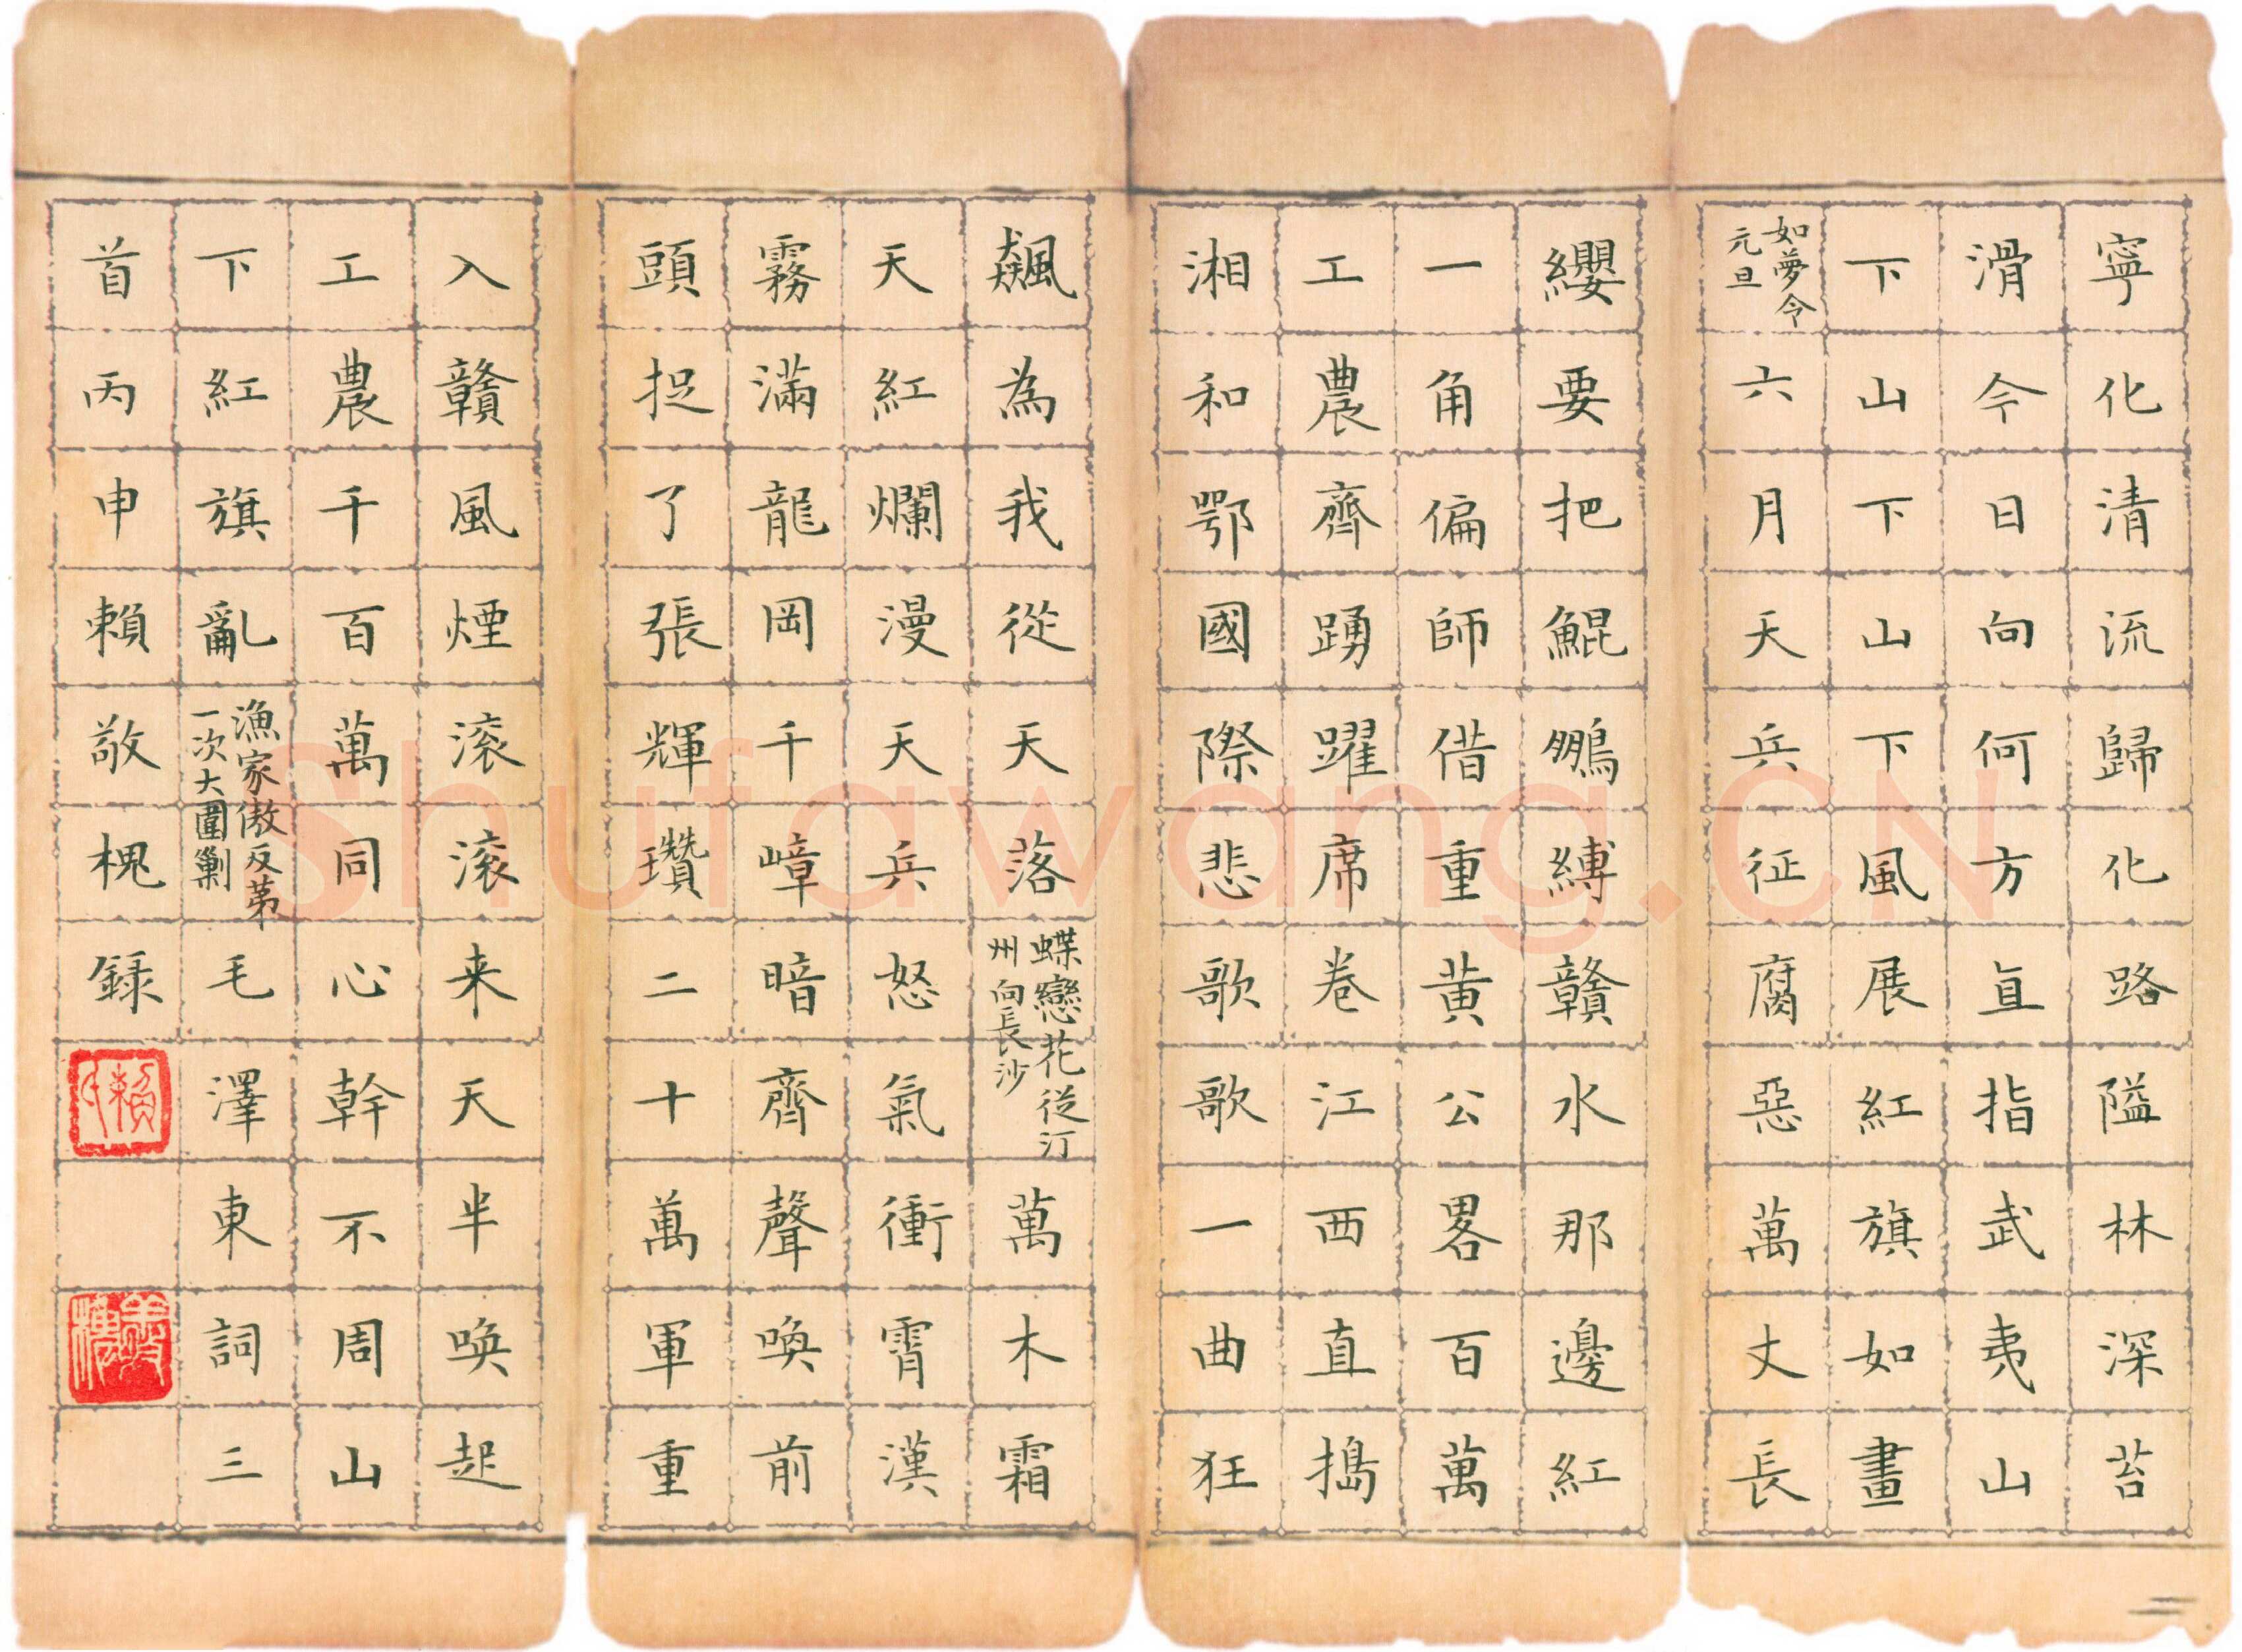 寧化清流歸化路隘林深苔
滑今日向何方直指武夷山
下山下山下風展紅旗如畫
如夢令
元旦
六月天兵征腐惡萬丈長
纓要把鯤鵬縛贛水那邊紅
一角偏師借重黃公畧百萬
工農齊踴躍席卷江西直搗
湘和鄂國際悲歌歌一曲狂
飆為我從天落
蝶戀花從汀
州向長沙
萬木霜
天紅爛漫天兵怒氣衝霄漢
霧滿龍岡千嶂暗齊聲喚前
頭捉了張輝瓚二十萬軍重
入贛風煙滚滚来天半喚起
工農千百萬同心幹不周山
下紅旗亂
漁家傲反苐
一次大圍剿
毛澤東詞三
首丙申賴敬槐録
Shufawang.CN